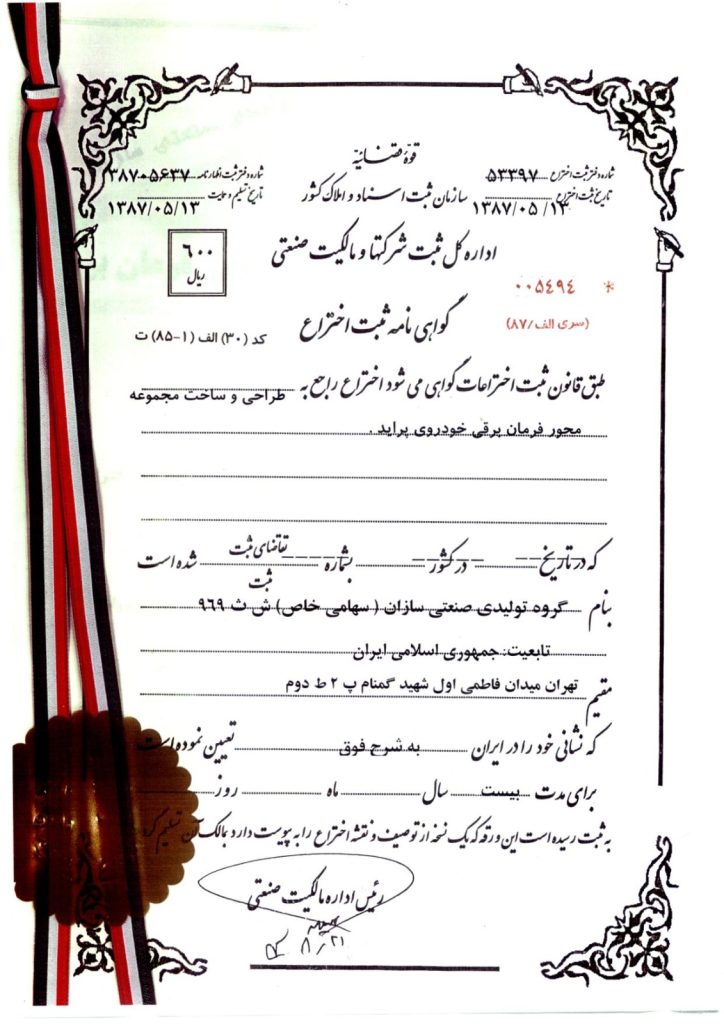 قوهٔ قضائیه
شماره دفتر ثبت اختراع ۵۳۳۹۷
شماره دفتر ثبت اظهارنامه ۳۸۷۰۵۶۳۷
سازمان ثبت اسناد و املاک کشور
تاریخ ثبت اختراع ۱۳۸۷/۰۵/۱۳
تاریخ تسلیم و ۱۳۸۷/۰۵/۱۳
اداره کل ثبت شرکتها و مالکیت صنعتی
۶۰۰
ریال
* ۰۰۵۴۹۴
(سری الف/۸۷)
گواهی نامه ثبت اختراع
کد (۳۰) الف (۱-۸۵) ت
طبق قانون ثبت اختراعات گواهی می شود اختراع راجع به طراحی و ساخت مجموعه
محور فرمان برقی خودروی پراید .
که در تاریخ در کشور بشماره تقاضای ثبت شده است
ثبت
بنام گروه تولیدی صنعتی سازان ( سهامی خاص) ش ث ۹۶۹
تابعیت: جمهوری اسلامی ایران
مقیم تهران میدان فاطمی اول شهید گمنام پ ۲ ط دوم
که نشانی خود را در ایران به شرح فوق تعیین نموده است
برای مدت بیست سال ماه روز
به ثبت رسیده است این ورقه که یک نسخه از توصیف و نقشه اختراع را به پیوست دارد بمالک آن تسلیم
رئیس اداره مالکیت صنعتی
۸/۲۱